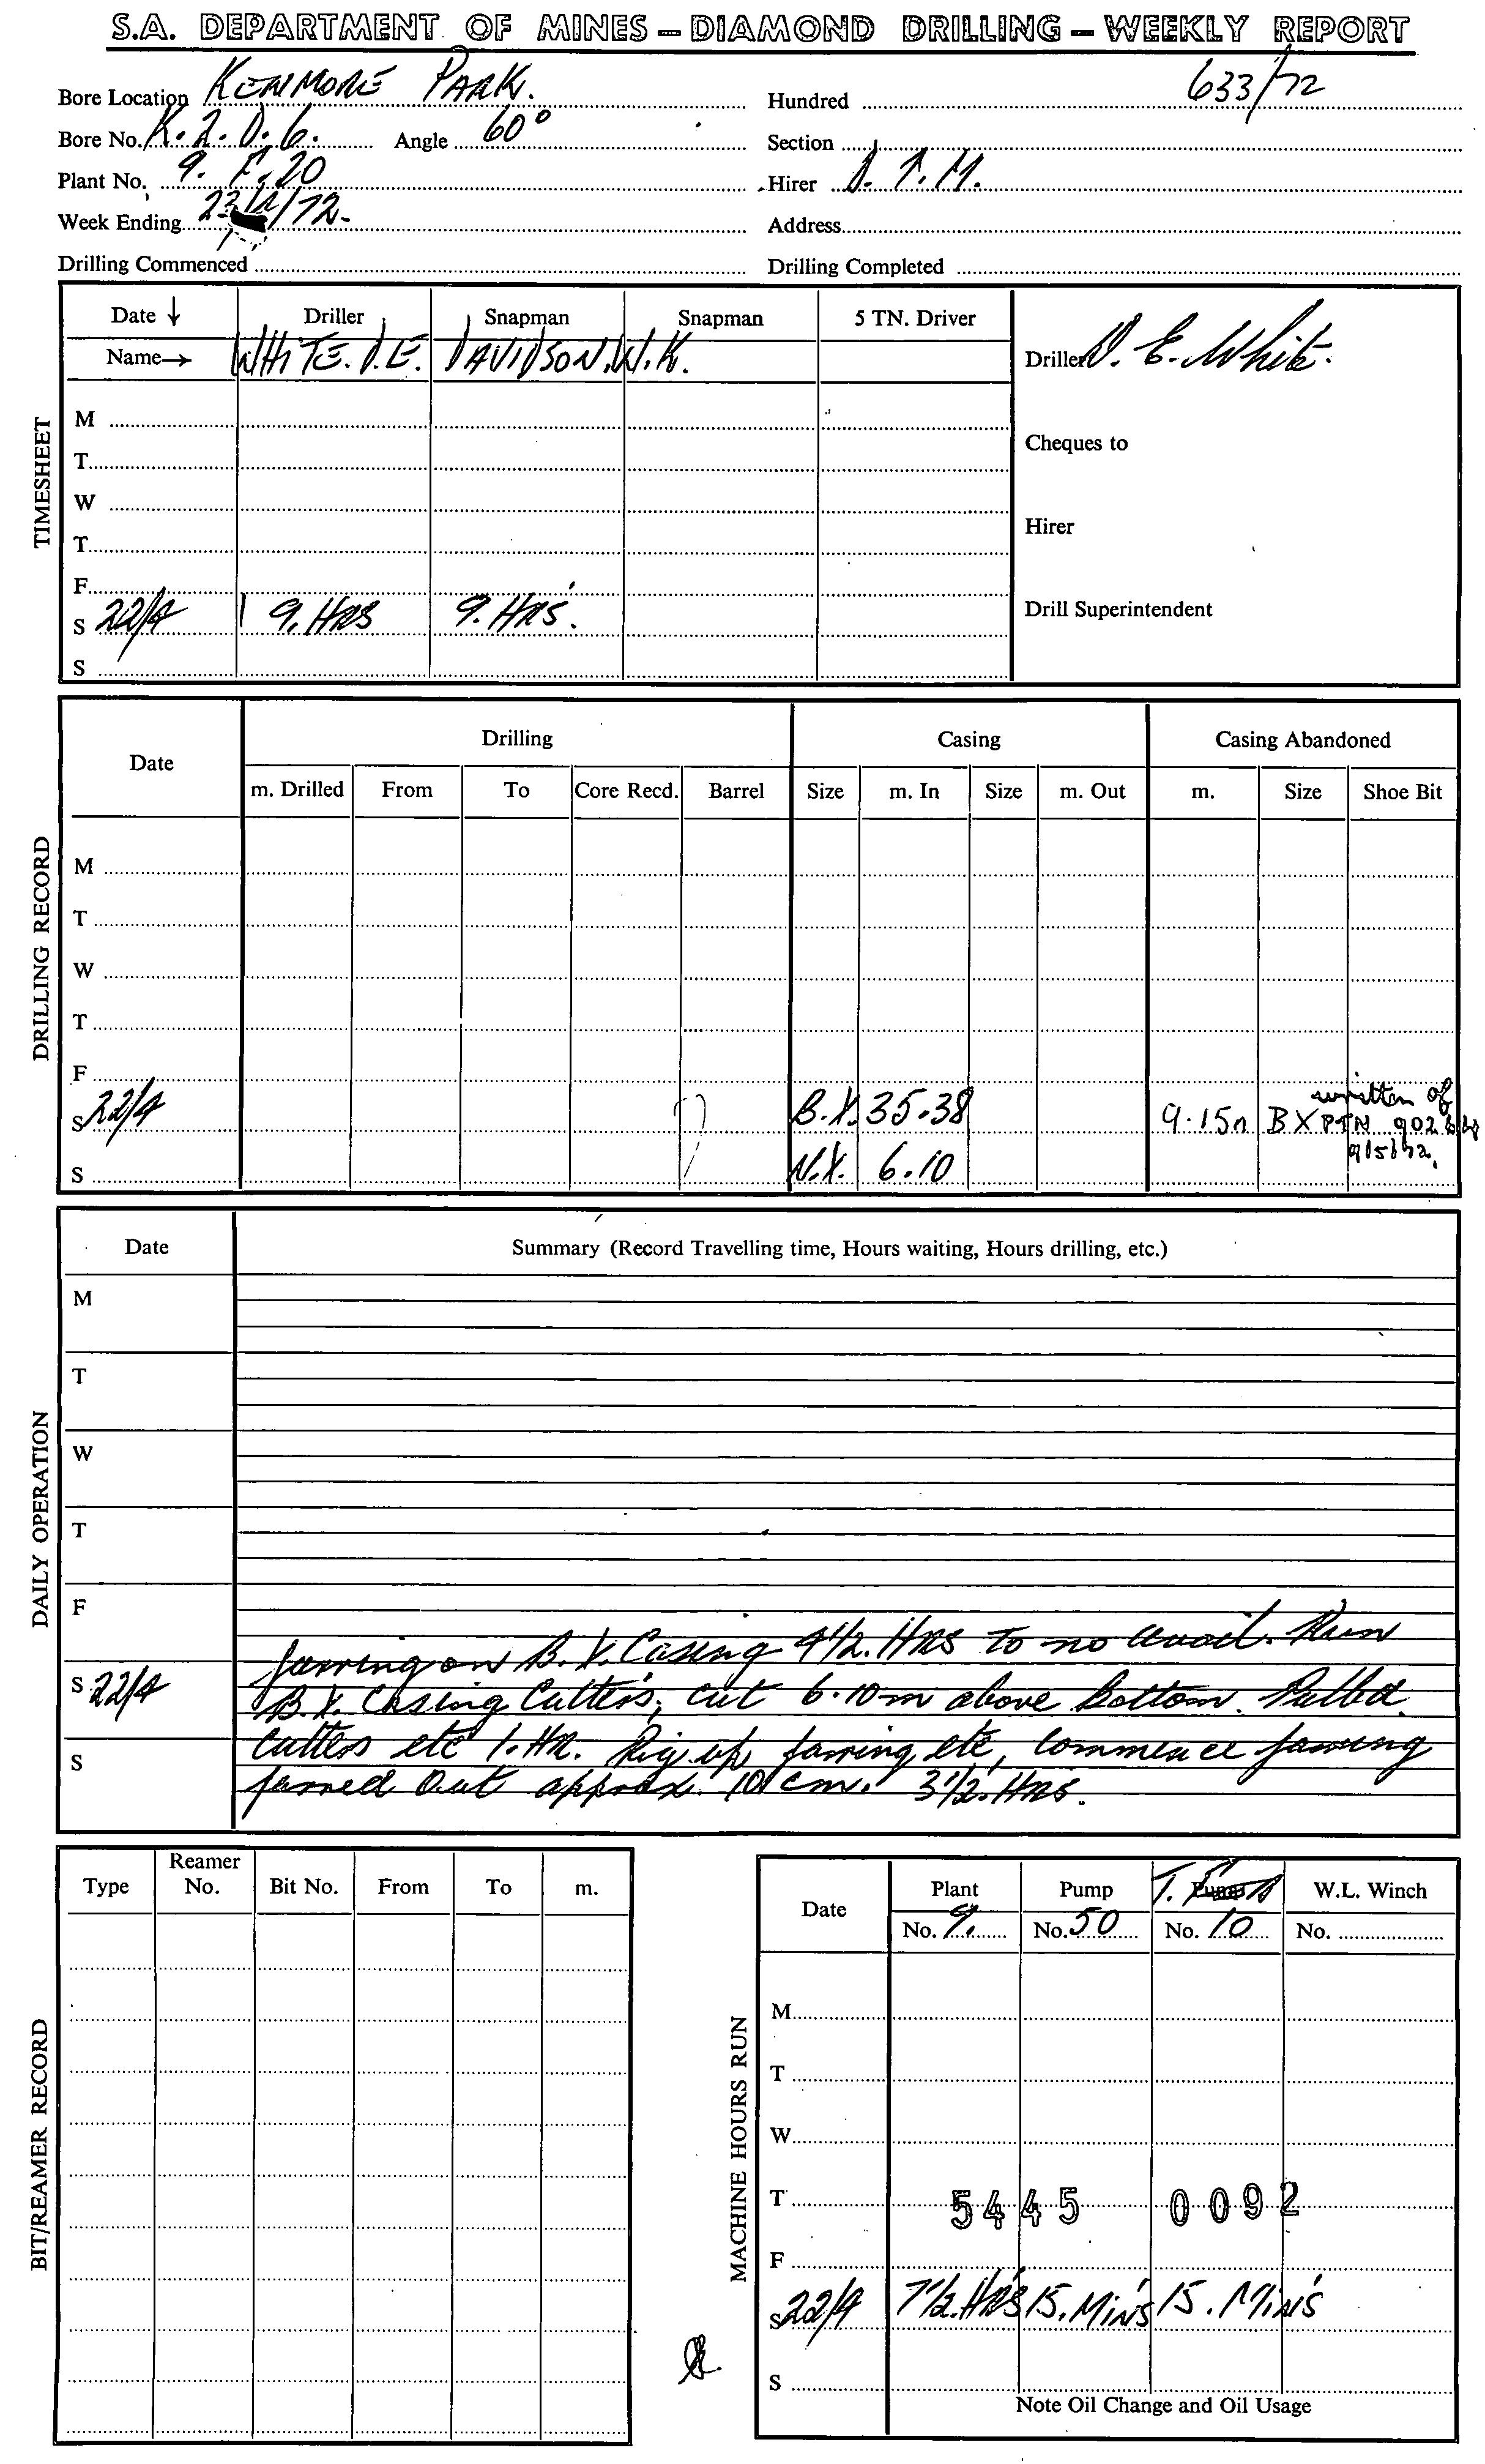 S.A. DEPARTMENT OF MINES – DIAMOND DRILLING – WEEKLY REPORT
Bore Location KENMORE PARK. Hundred 633/72
Bore No. K.2.D.6. Angle 60° Section
Plant No. 9. F.20 Hirer
Week Ending 23/ /72. Address
Drilling Commenced Drilling Completed
TIMESHEET
Date ↓ Driller Snapman Snapman 5 TN. Driver
Name → WHITE. D.E. DAVIDSON. W.K. Driller D. E. White.
M
T Cheques to
W
T Hirer
F
S 22/4 9. HRS 9. HRS. Drill Superintendent
S
DRILLING RECORD
Date Drilling Casing Casing Abandoned
m. Drilled From To Core Recd. Barrel Size m. In Size m. Out m. Size Shoe Bit
M
T
W
T
F
written of
S 22/4 B.X. 35.38 9.15m BX PTN
9/5/72.
S N.X. 6.10
DAILY OPERATION
Date Summary (Record Travelling time, Hours waiting, Hours drilling, etc.)
M
T
W
T
F
Jarring on B.X. Casing 4 1/2. HRS to no avail. Run
S 22/4 B.X. Casing Cutters, cut 6.10m above bottom. Pulled
S Cutters etc 1. HR. Rig up jarring etc, Commence jarring
jarred out approx. 10 cm. 3 1/2. HRS.
BIT/REAMER RECORD
Type Reamer No. Bit No. From To m.
MACHINE HOURS RUN
Date Plant Pump T. Pump W.L. Winch
No. 9. No. 50 No. 10 No.
M
T
W
T 5445 0092
F
S 22/4 7 1/2. HRS 15. MINS 15. MINS
S
Note Oil Change and Oil Usage